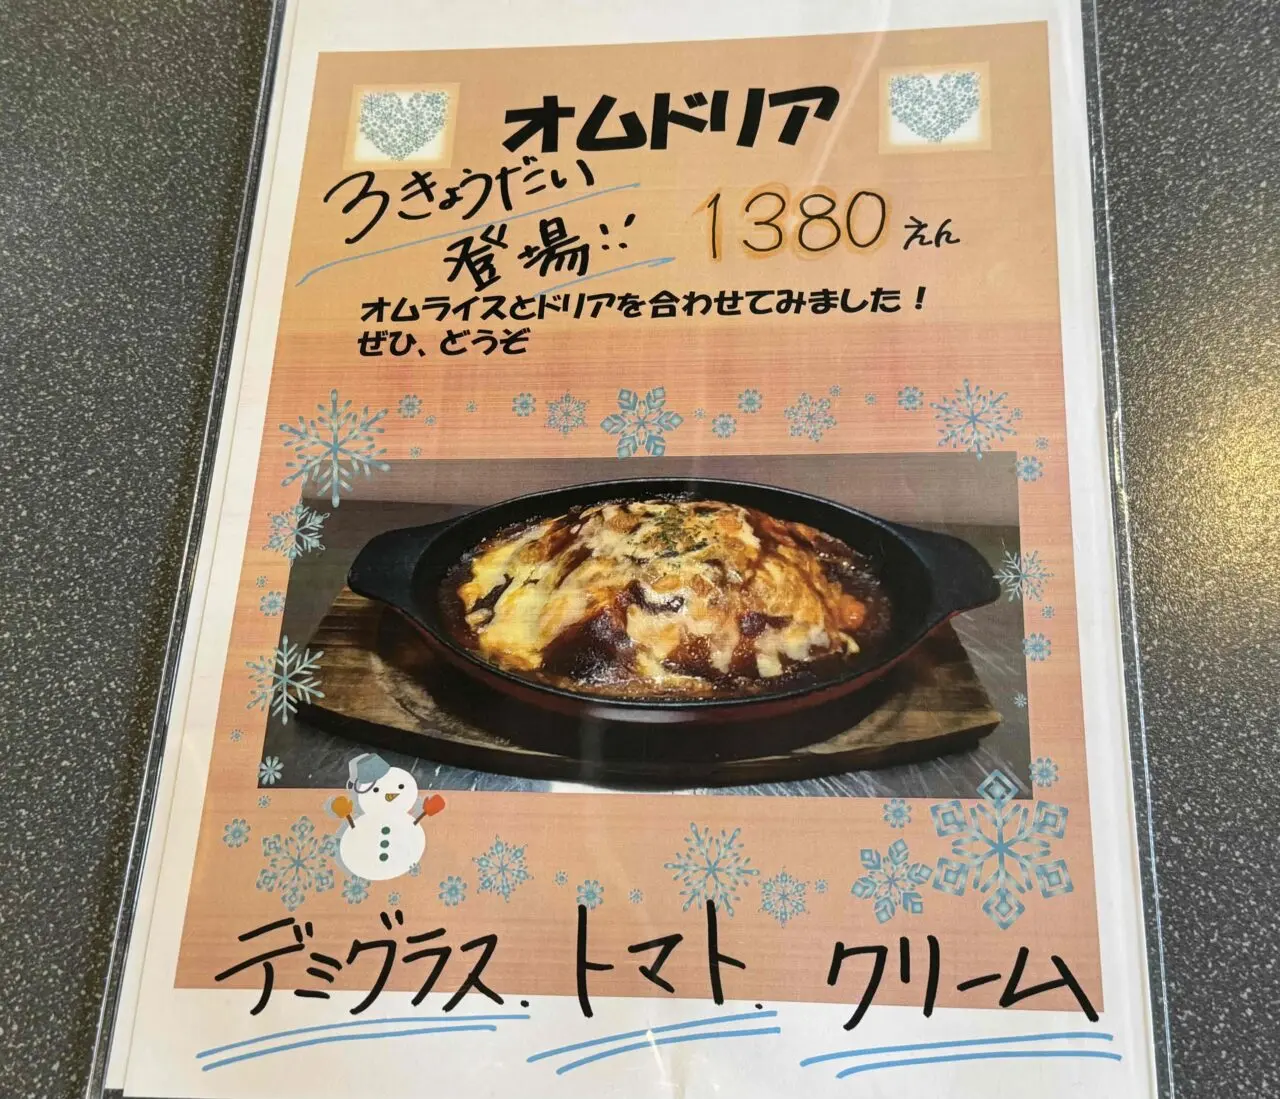 オムドリア
3きょうだい
登場!!
1380えん
オムライスとドリアを合わせてみました！
ぜひ、どうぞ
デミグラス. トマト. クリーム